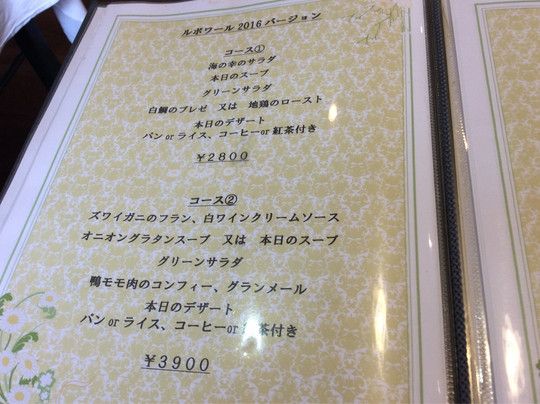 ルポワール 2016 バージョン
コース①
海の幸のサラダ
本日のスープ
グリーンサラダ
白鯛のブレゼ 又は 地鶏のロースト
本日のデザート
パン or ライス、コーヒー or 紅茶付き
￥2800
コース②
ズワイガニのフラン、白ワインクリームソース
オニオングラタンスープ 又は 本日のスープ
グリーンサラダ
鴨モモ肉のコンフィー、グランメール
本日のデザート
パン or ライス、コーヒー or 茶付き
￥3900